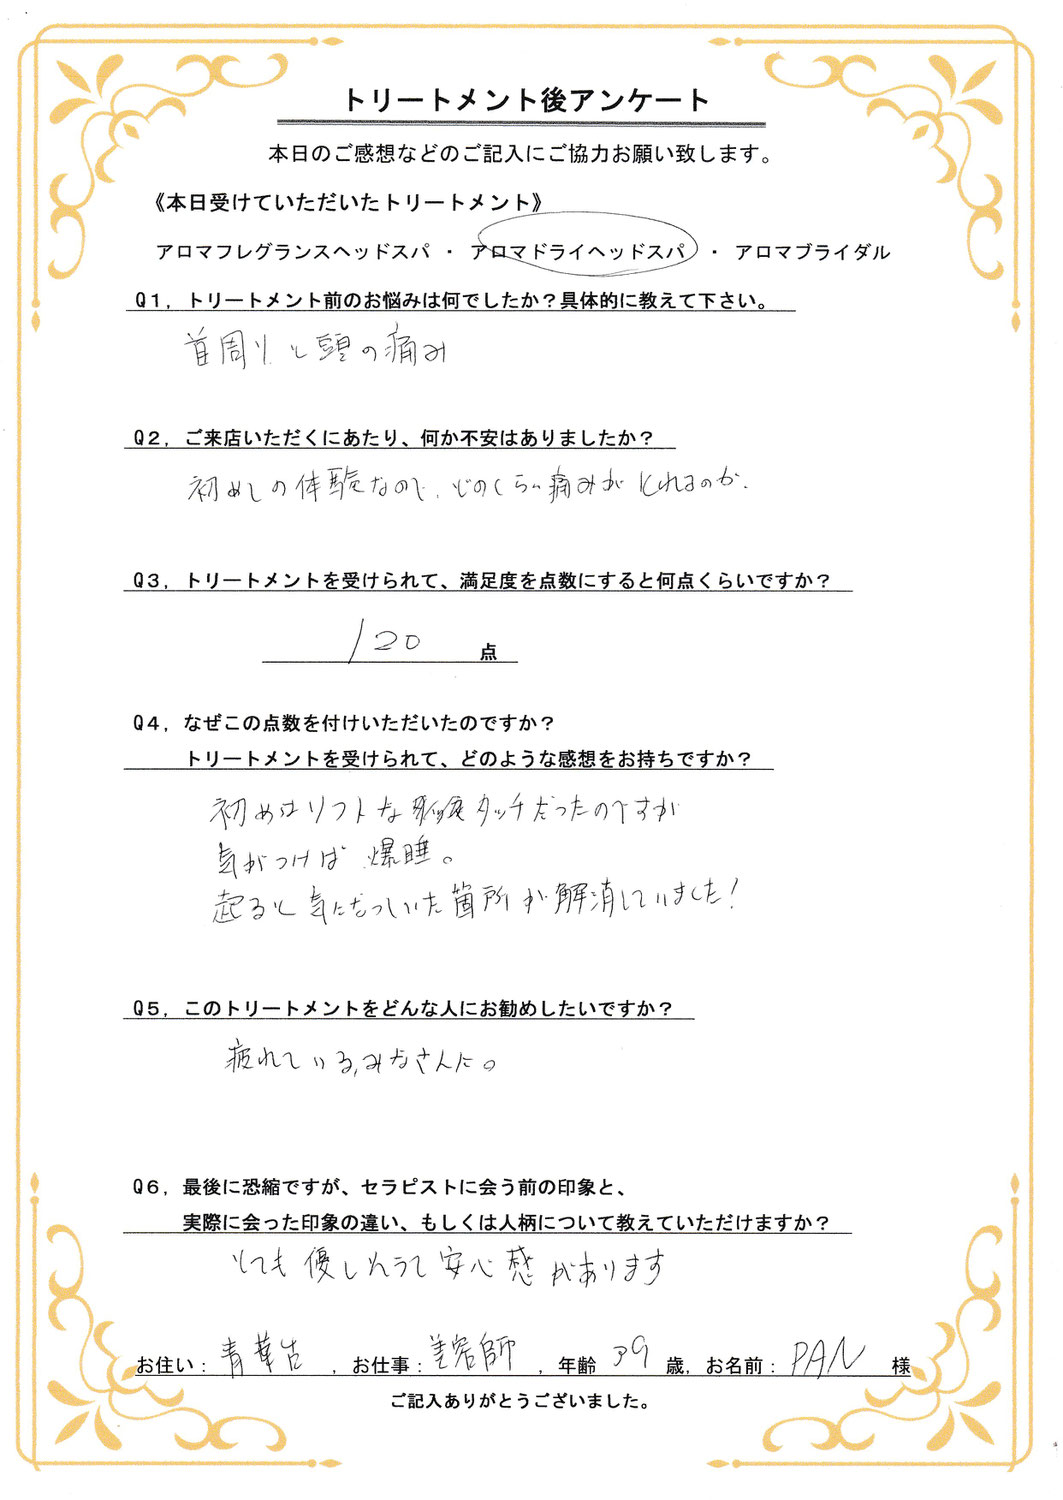 トリートメント後アンケート
本日のご感想などのご記入にご協力お願い致します。
《本日受けていただいたトリートメント》
アロマフレグランスヘッドスパ ・ アロマドライヘッドスパ ・ アロマブライダル
Q1，トリートメント前のお悩みは何でしたか？具体的に教えて下さい。
首周りと頭の痛み
Q2，ご来店いただくにあたり、何か不安はありましたか？
初めての体験なので、どのくらい痛みがとれるのか.
Q3，トリートメントを受けられて、満足度を点数にすると何点くらいですか？
120 点
Q4，なぜこの点数を付けいただいたのですか？
トリートメントを受けられて、どのような感想をお持ちですか？
初めはソフトな タッチだったのですが
気がつけば 爆睡。
起きると気になっていた箇所が解消していました！
Q5，このトリートメントをどんな人にお勧めしたいですか？
疲れている、みなさんに。
Q6，最後に恐縮ですが、セラピストに会う前の印象と、
実際に会った印象の違い、もしくは人柄について教えていただけますか？
とても優しそうで安心感があります
お住い： 青葉台 ，お仕事：美容師 ，年齢 39 歳，お名前： PAN 様
ご記入ありがとうございました。